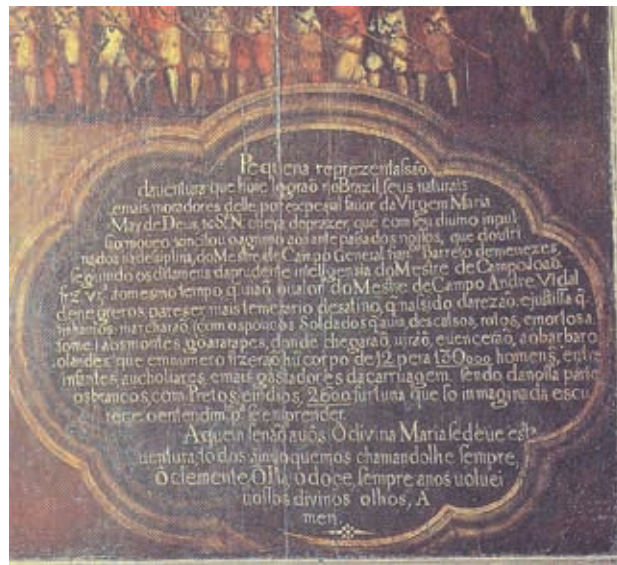 Pequena reprezentaſsão
da uentura que hoie logrão no Brazil, ſeus naturais
e mais moradores delle, por expeçial fauor da Virgem Maria
May de Deus, e S.N. cheya de prazer, que com ſeu diuino inpul
ſo moueo, o animo aos ante paſsados noſsos, que doutri
nados na deſiplina, do Mestre de Campo General Barreto de menezes,
ſeguindo os ditames da prudente inteligensia do Mestre de Campo Joaõ
frz Vrª ao mesmo tempo q uiaõ o ualor do Mestre de Campo Andre Vidal
de negreros, pareser mais temerario desatino, q naſsido da rezaõ, e juſtiſsa q̃
tinhamos: marcharaõ (com os poucos Soldados q auia descalsos, rotos, e mortos a
fome) aos montes goararapes, donde chegaraõ, uiraõ, e uencerão, ao barbaro
olandes: que em numero fizeraõ hũ corpo de 12 pera 130000 homens, entre
infantes, aucholiares, e mais gastadores da carruagem. ſendo da noſſa parte
os brancos, com Pretos, e indios, 2600 furtuna que ſo immaginada escu
rece o entendimᵗᵒ ſe emprender.
A quem ſenaõ a uós O divina Maria ſe deue esta
uentura, to dos a inuoquemos chamandolhe ſempre,
ó clemente, O Pia, ó doce, ſempre a nos uoluei
uoſſos divinos olhos, A
men.